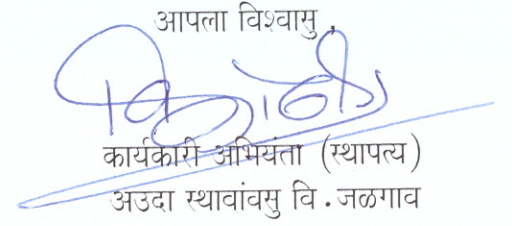 आपला विश्वासु,
कार्यकारी अभियंता (स्थापत्य)
अउदा स्थावांवसु वि.जळगाव